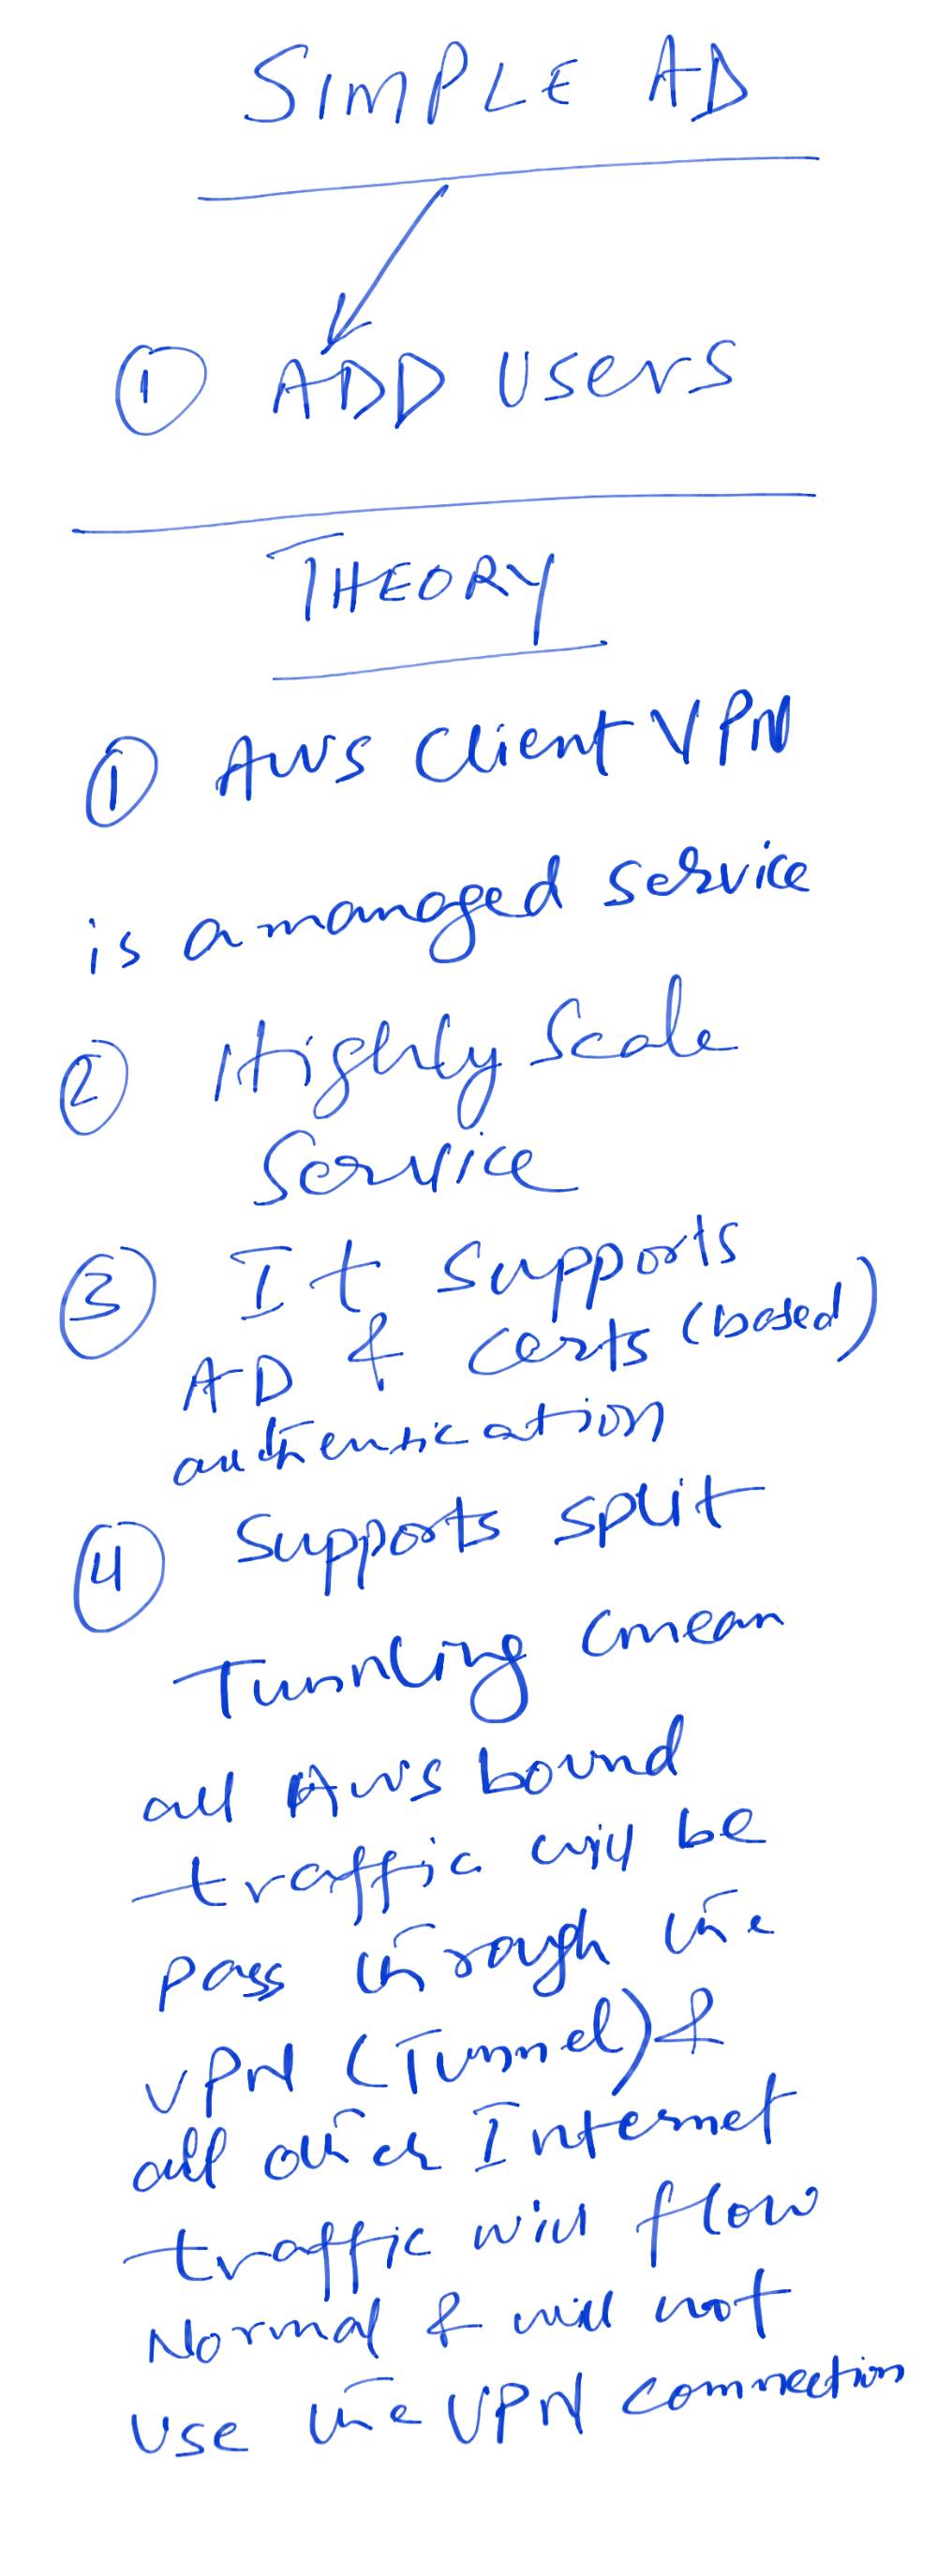 SIMPLE AD
① ADD Users
THEORY
① AWS Client VPN
is a managed service
② Highly Scale
Service
③ It supports
AD & certs (based)
authentication
④ Supports split
Tunnling (mean
all AWS bound
traffic will be
pass through the
VPN (Tunnel) &
all other Internet
traffic will flow
Normal & will not
use the VPN connection